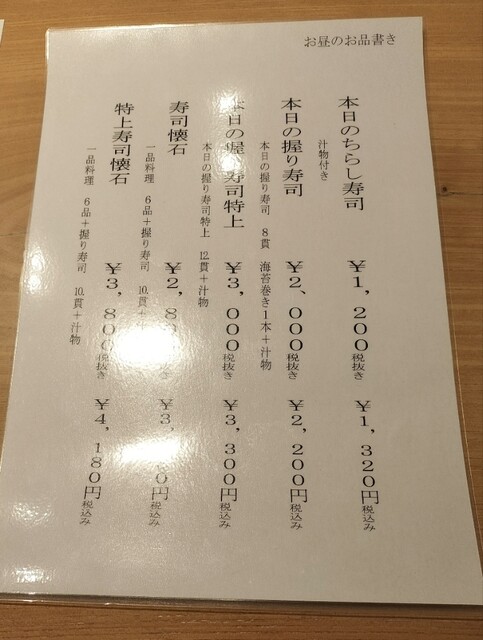 お昼のお品書き
本日のちらし寿司 ¥1,200税抜き ¥1,320円税込み
汁物付き
本日の握り寿司 ¥2、000税抜き ¥2,200円税込み
本日の握り寿司 8貫 海苔巻き1本+汁物
本日の握り寿司特上 ¥3,000税抜き ¥3,300円税込み
本日の握り寿司特上 12貫+汁物
寿司懐石 税抜き 税込み
一品料理 6品+握り寿司 10貫+汁物
特上寿司懐石 ¥3,800税抜き ¥4,180円税込み
一品料理 6品+握り寿司 10貫+汁物